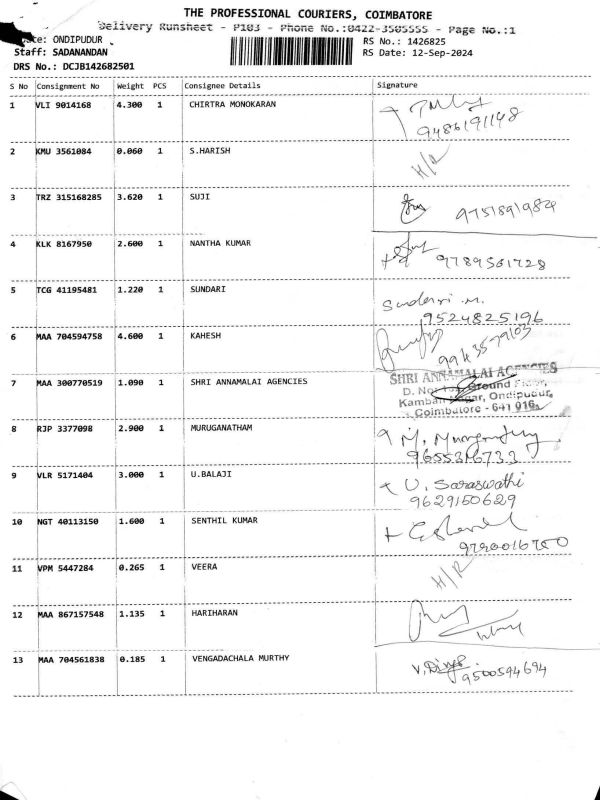 THE PROFESSIONAL COURIERS, COIMBATORE
Delivery Runsheet - P103 - Phone No.:0422-3505555 - Page No.:1
ONDIPUDUR
RS No.: 1426825
Staff: SADANANDAN
RS Date: 12-Sep-2024
DRS No.: DCJB142682501
S No Consignment No Weight PCS Consignee Details Signature
1 VLI 9014168 4.300 1 CHIRTRA MONOKARAN
9486191148
2 KMU 3561084 0.060 1 S.HARISH H/R
3 TRZ 315168285 3.620 1 SUJI
4 KLK 8167950 2.600 1 NANTHA KUMAR
9789561728
5 TCG 41195481 1.220 1 SUNDARI Sundari M.
9524825196
6 MAA 704594758 4.600 1 KAHESH
9943579103
7 MAA 300770519 1.090 1 SHRI ANNAMALAI AGENCIES SHRI ANNAMALAI AGENCIES
Ground Floor,
Nagar, Ondipudur,
Coimbatore - 641 016.
8 RJP 3377098 2.900 1 MURUGANATHAM
9655316733
9 VLR 5171404 3.000 1 U.BALAJI U. Saraswathi
9629150629
10 NGT 40113150 1.600 1 SENTHIL KUMAR
11 VPM 5447284 0.265 1 VEERA H/R
12 MAA 867157548 1.135 1 HARIHARAN
13 MAA 704561838 0.185 1 VENGADACHALA MURTHY
9500594694